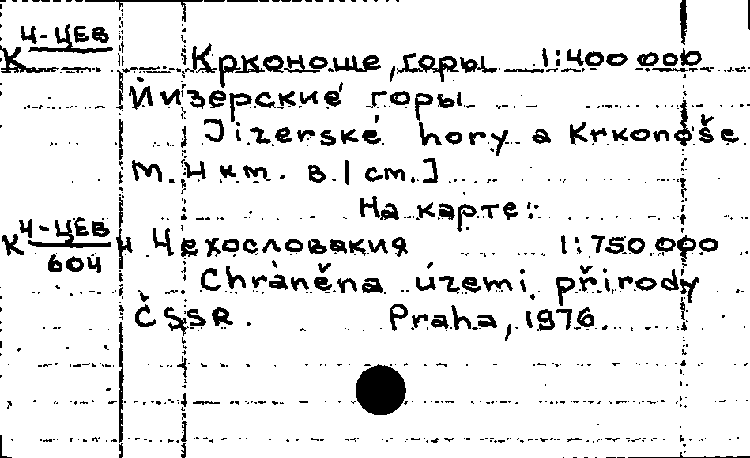 Ч-ЦЕВ
К Крконоше, горы 1:400 000
Йизерские горы
Jizerské hory a Krkonoše
М. 4 км. в 1 см.]
На карте:
К Ч-ЦЕВ
604 Ч Чехословакия 1:750 000
Chráněna území přírody
ČSSR. Praha, 1976.